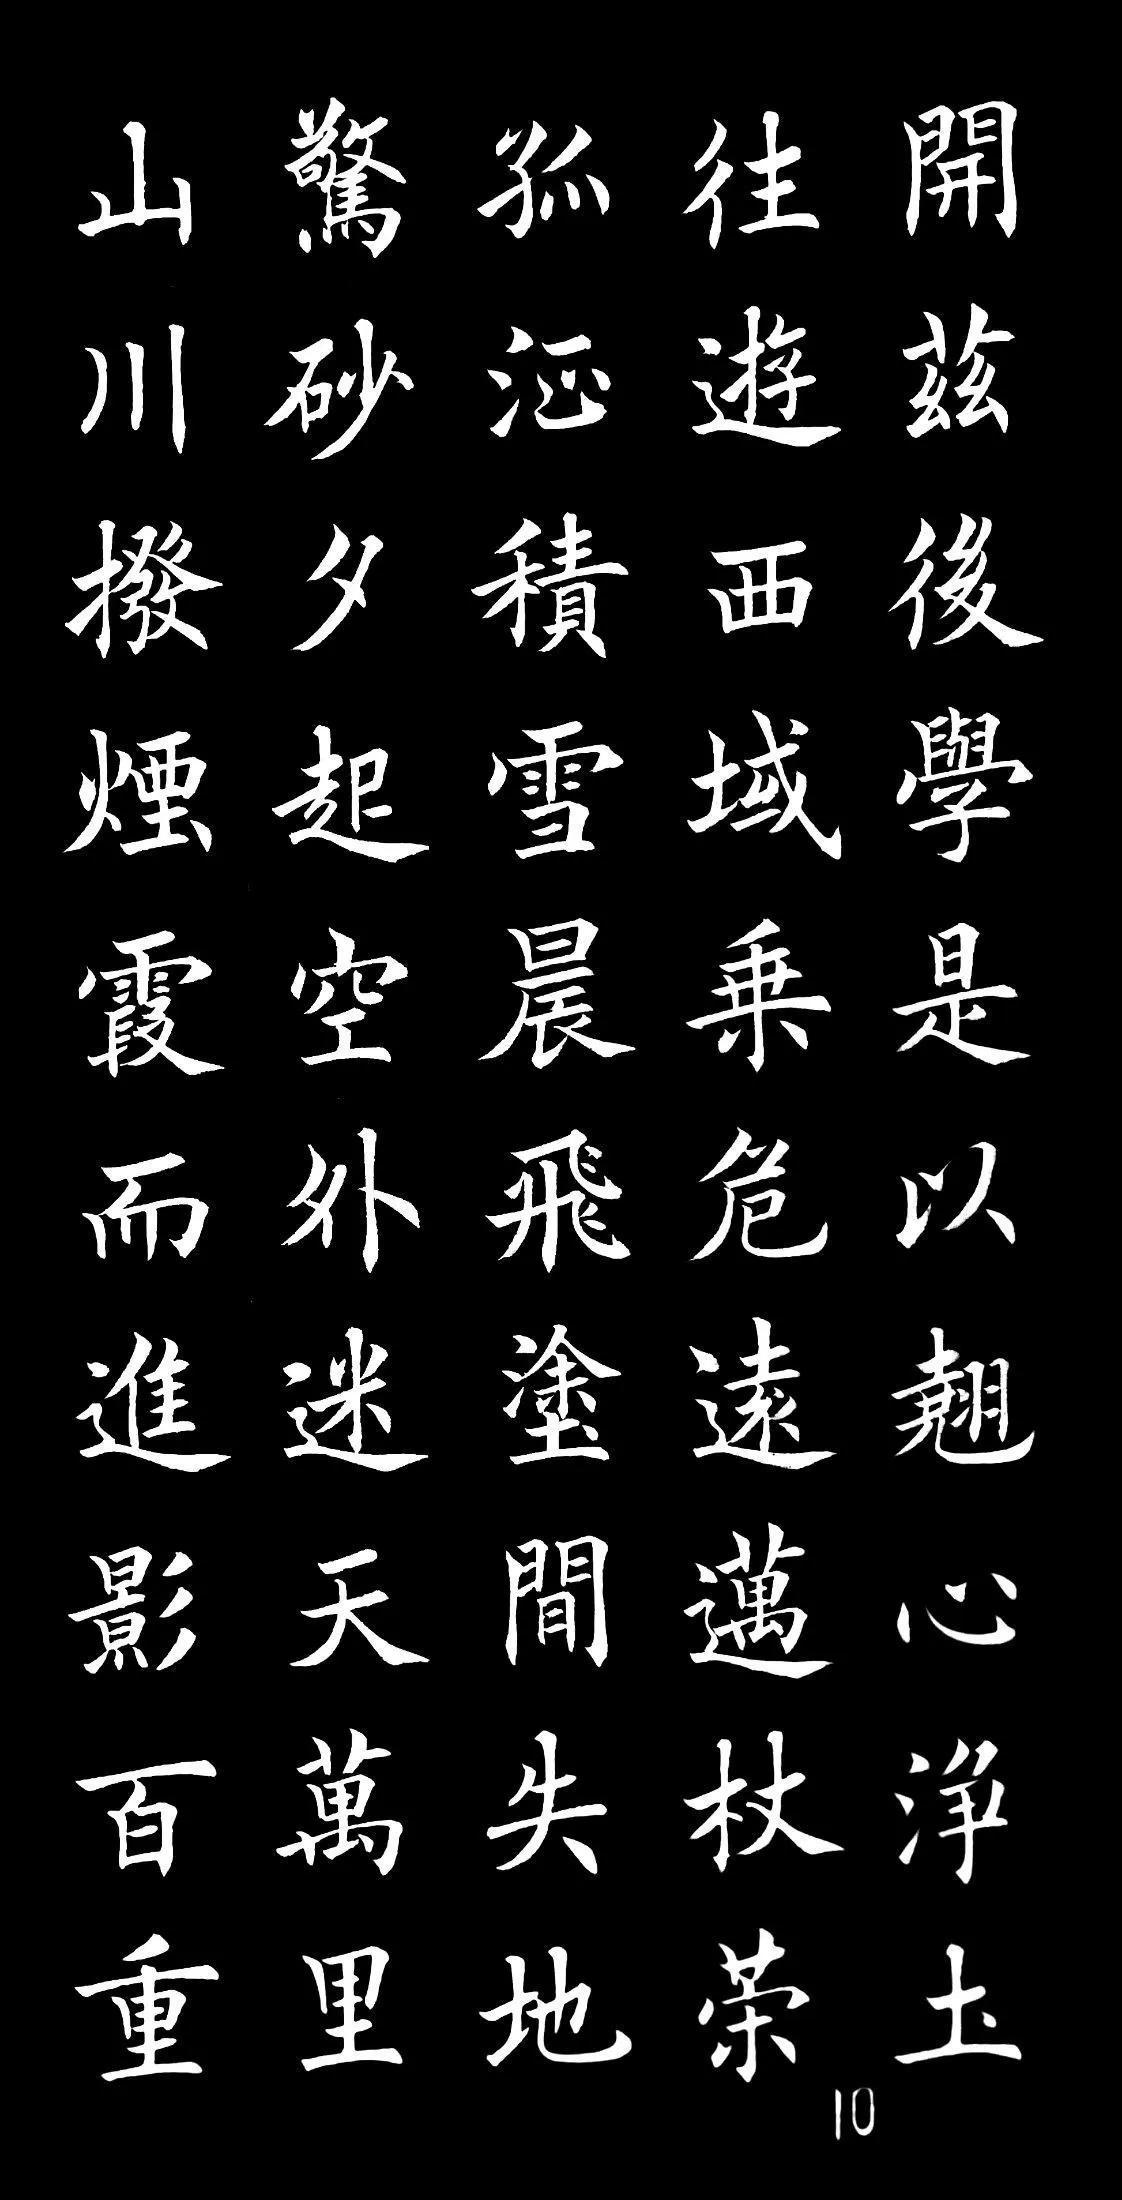 開茲後學是以翹心淨土
往遊西域乗危遠邁杖策
孤征積雪晨飛塗間失地
驚砂夕起空外迷天萬里
山川撥煙霞而進影百重
10